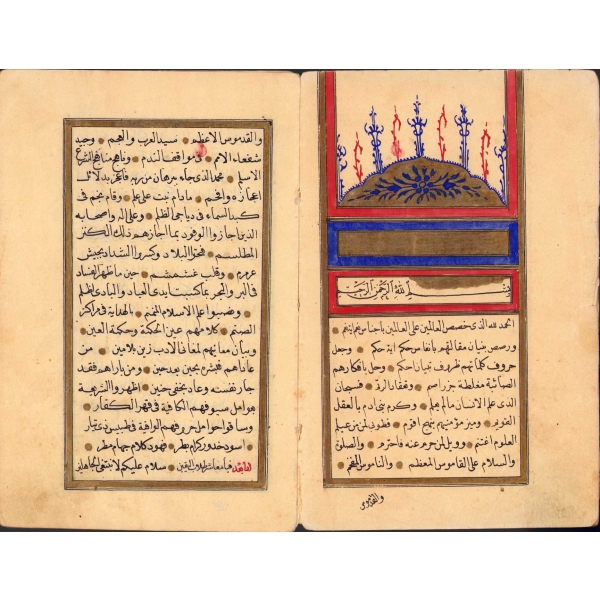 بسم الله الرحمن الرحيم
الحمد لله الذى خصص العالمين على العالمين باجناس نعم
ورصص بنيان مقالهم بانفاس حكم اية حكم وجعل
حروف كلماتهم ظروف تبيان وحل بافكارهم
الصبابة مغلطة فسبحان
الذى علم الانسان مالم يعلم وكرم بنى ادم بالعقل
القويم وميز مؤمنهم بنهج اقوم فطوبى لمن من عيلم
العلوم اغتنم وويل لمن حرم عنه فاحترم والصلوة
والسلام على القاموس المعظم والناموس المفخم
والقدموس
والقدموس الاعظم سيد العرب والعجم وجيد
شفعاء الامم فى مواقف الندم وناهج مناهج الشرع
الاسلم محمد الذى جاء ببرهان من ربهم فاعجز بدلائل
اعجازه وافحم مادام نبت على علم وقام نجم فى
كبد السماء فى دياجى الظلم وعلى اله واصحابه
الذين اجازوا الوفود بما اجازهم ذلك الكنز
المطلسم فتحوا البلاد وكسروا الشداد بجيش
عرمرم وقلب غشمشم حين ما ظهر الفساد
فى البر والبحر بما كسبت ايدى العباد والبادى اظلم
ونصبوا علم الاسلام بالهداية فى مراكز
الصنم كلامهم عين الحكمة وحكمة العين
وبيان معانيهم لمغانى الادب زين بلا مين من
عاناهم فبشره بحين بعد حين ومن باراهم فقد
جار نفسه وعاد بخفى حنين اظهروا الشريعة
بعوامل سيوفهم الكافية فى قهر الكفار
وساقوا حوامل حروفهم الوافية
اسود خدور كرام بطر فهود كلام جهام مطر
اما بعد فيا سلام عليكم لا نبتغى الجاهلين